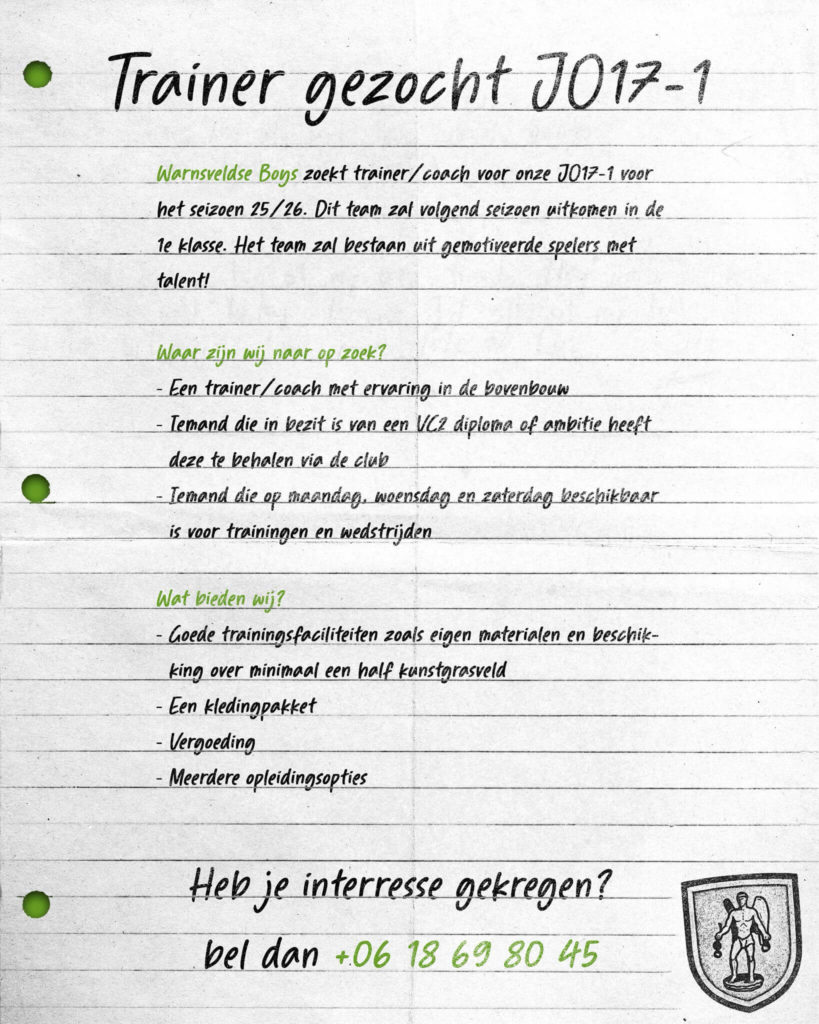 Trainer gezocht JO17-1
Warnsveldse Boys zoekt trainer/coach voor onze JO17-1 voor
het seizoen 25/26. Dit team zal volgend seizoen uitkomen in de
1e klasse. Het team zal bestaan uit gemotiveerde spelers met
talent!
Waar zijn wij naar op zoek?
- Een trainer/coach met ervaring in de bovenbouw
- Iemand die in bezit is van een VC2 diploma of ambitie heeft
deze te behalen via de club
- Iemand die op maandag, woensdag en zaterdag beschikbaar
is voor trainingen en wedstrijden
Wat bieden wij?
- Goede trainingsfaciliteiten zoals eigen materialen en beschik-
king over minimaal een half kunstgrasveld
- Een kledingpakket
- Vergoeding
- Meerdere opleidingsopties
Heb je interresse gekregen?
bel dan +06 18 69 80 45